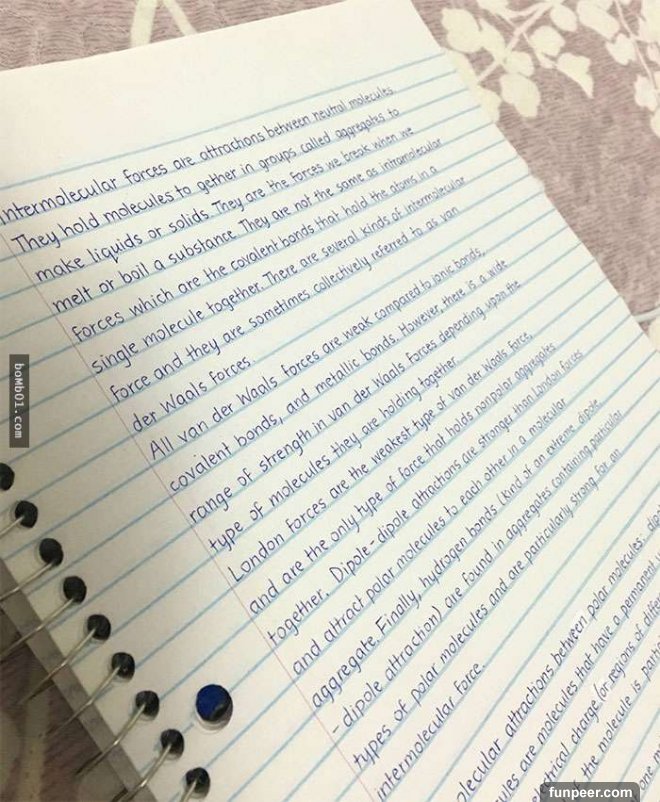 Intermolecular forces are attractions between neutral molecules.
They hold molecules to gether in groups called aggregates to
make liquids or solids. They are the forces we break when we
melt or boil a substance. They are not the same as intramolecular
forces which are the covalent bonds that hold the atoms in a
single molecule together. There are several kinds of intermolecular
force and they are sometimes collectively referred to as van
der Waals forces.
All van der Waals forces are weak compared to ionic bonds,
covalent bonds, and metallic bonds. However, there is a wide
range of strength in van der Waals forces depending upon the
type of molecules they are holding together.
London forces are the weakest type of van der Waals force
and are the only type of force that holds nonpolar aggregates
together. Dipole-dipole attractions are stronger than London forces
and attract polar molecules to each other in a molecular
aggregate. Finally, hydrogen bonds (kind of an extreme dipole
-dipole attraction) are found in aggregates containing particular
types of polar molecules and are particularly strong for an
intermolecular force.
lecular attractions between polar molecules,
are molecules that have a permanent
charge (or regions of
the molecule is
one
bomb01.com
funpeer.com